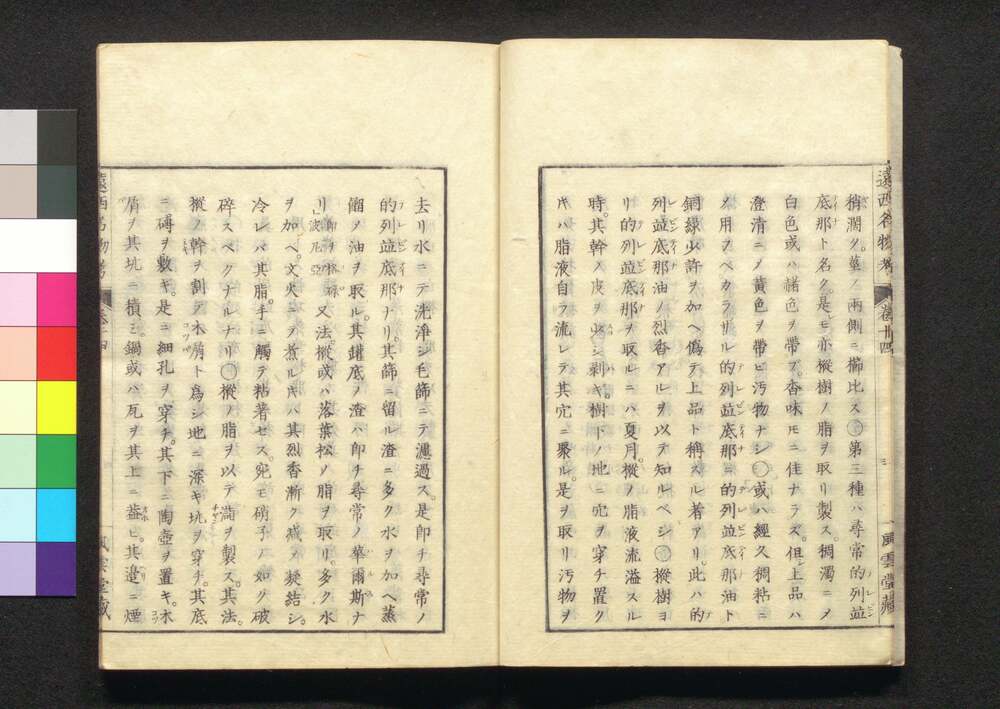 遠西名物考 卷廿四 三 風雲堂藏
稍濶ク。葉ノ兩側ニ櫛比ス○第三種ハ尋常的列並
底那ト名ク。是モ亦樅樹ノ脂ヲ取リ製ス。稠濁ニメ
白色或ハ褐色ヲ帶ブ。香味モニ佳ナラズ。但上品ハ
澄清ニメ黃色ヲ帶ビ汚物ナシ○或ハ經久稠粘ニ
メ用ヲベカラザル的列並底那ニ的列並底那油ト
銅綠少許ヲ加ヘ僞テ上品ト稱スル者アリ。此ハ的
列並底那油ノ烈香アルヲ以テ知ルベシ○樅樹ヨ
リ的列並底那ヲ取ルニハ夏月。樅ノ脂液流溢スル
時。其幹ノ皮ヲ少シ剥ギ。樹下ノ地ニ穴ヲ穿チ置ク
キハ脂液自ラ流レテ其穴ニ聚ル。是ヲ取リ汚物ヲ
去リ水ニテ洗淨シ毛篩ニテ濾過ス。是卽チ尋常ノ
的列並底那ナリ。其篩ニ留ル渣ニ多ク水ヲ加ヘ蒸
餾ノ油ヲ取ル。其罐底ノ渣ハ卽チ尋常ノ華爾斯ナ
リ 又法樅或ハ落葉松ノ脂ヲ取リ。多ク水
ヲ加ヘ。文火ニテ煮ルキハ其烈香漸ク減ノ凝結シ。
冷レバ其脂。手ニ觸テ粘著セス。宛モ硝子ノ如ク破
碎スベクナルナリ○樅ノ脂ヲ以テ 製ス。其法。
樅ノ幹ヲ割テ木屑ト爲シ地ニ深キ坑ヲ穿チ。其底
ニ磚ヲ敷キ。是ニ細孔ヲ穿チ。其下ニ陶壺ヲ置キ。木
屑ヲ其坑ニ積ミ鍋或ハ瓦ヲ其上ニ蓋ヒ。其邊ニ煙
遠西名物考 卷廿四 風雲堂藏